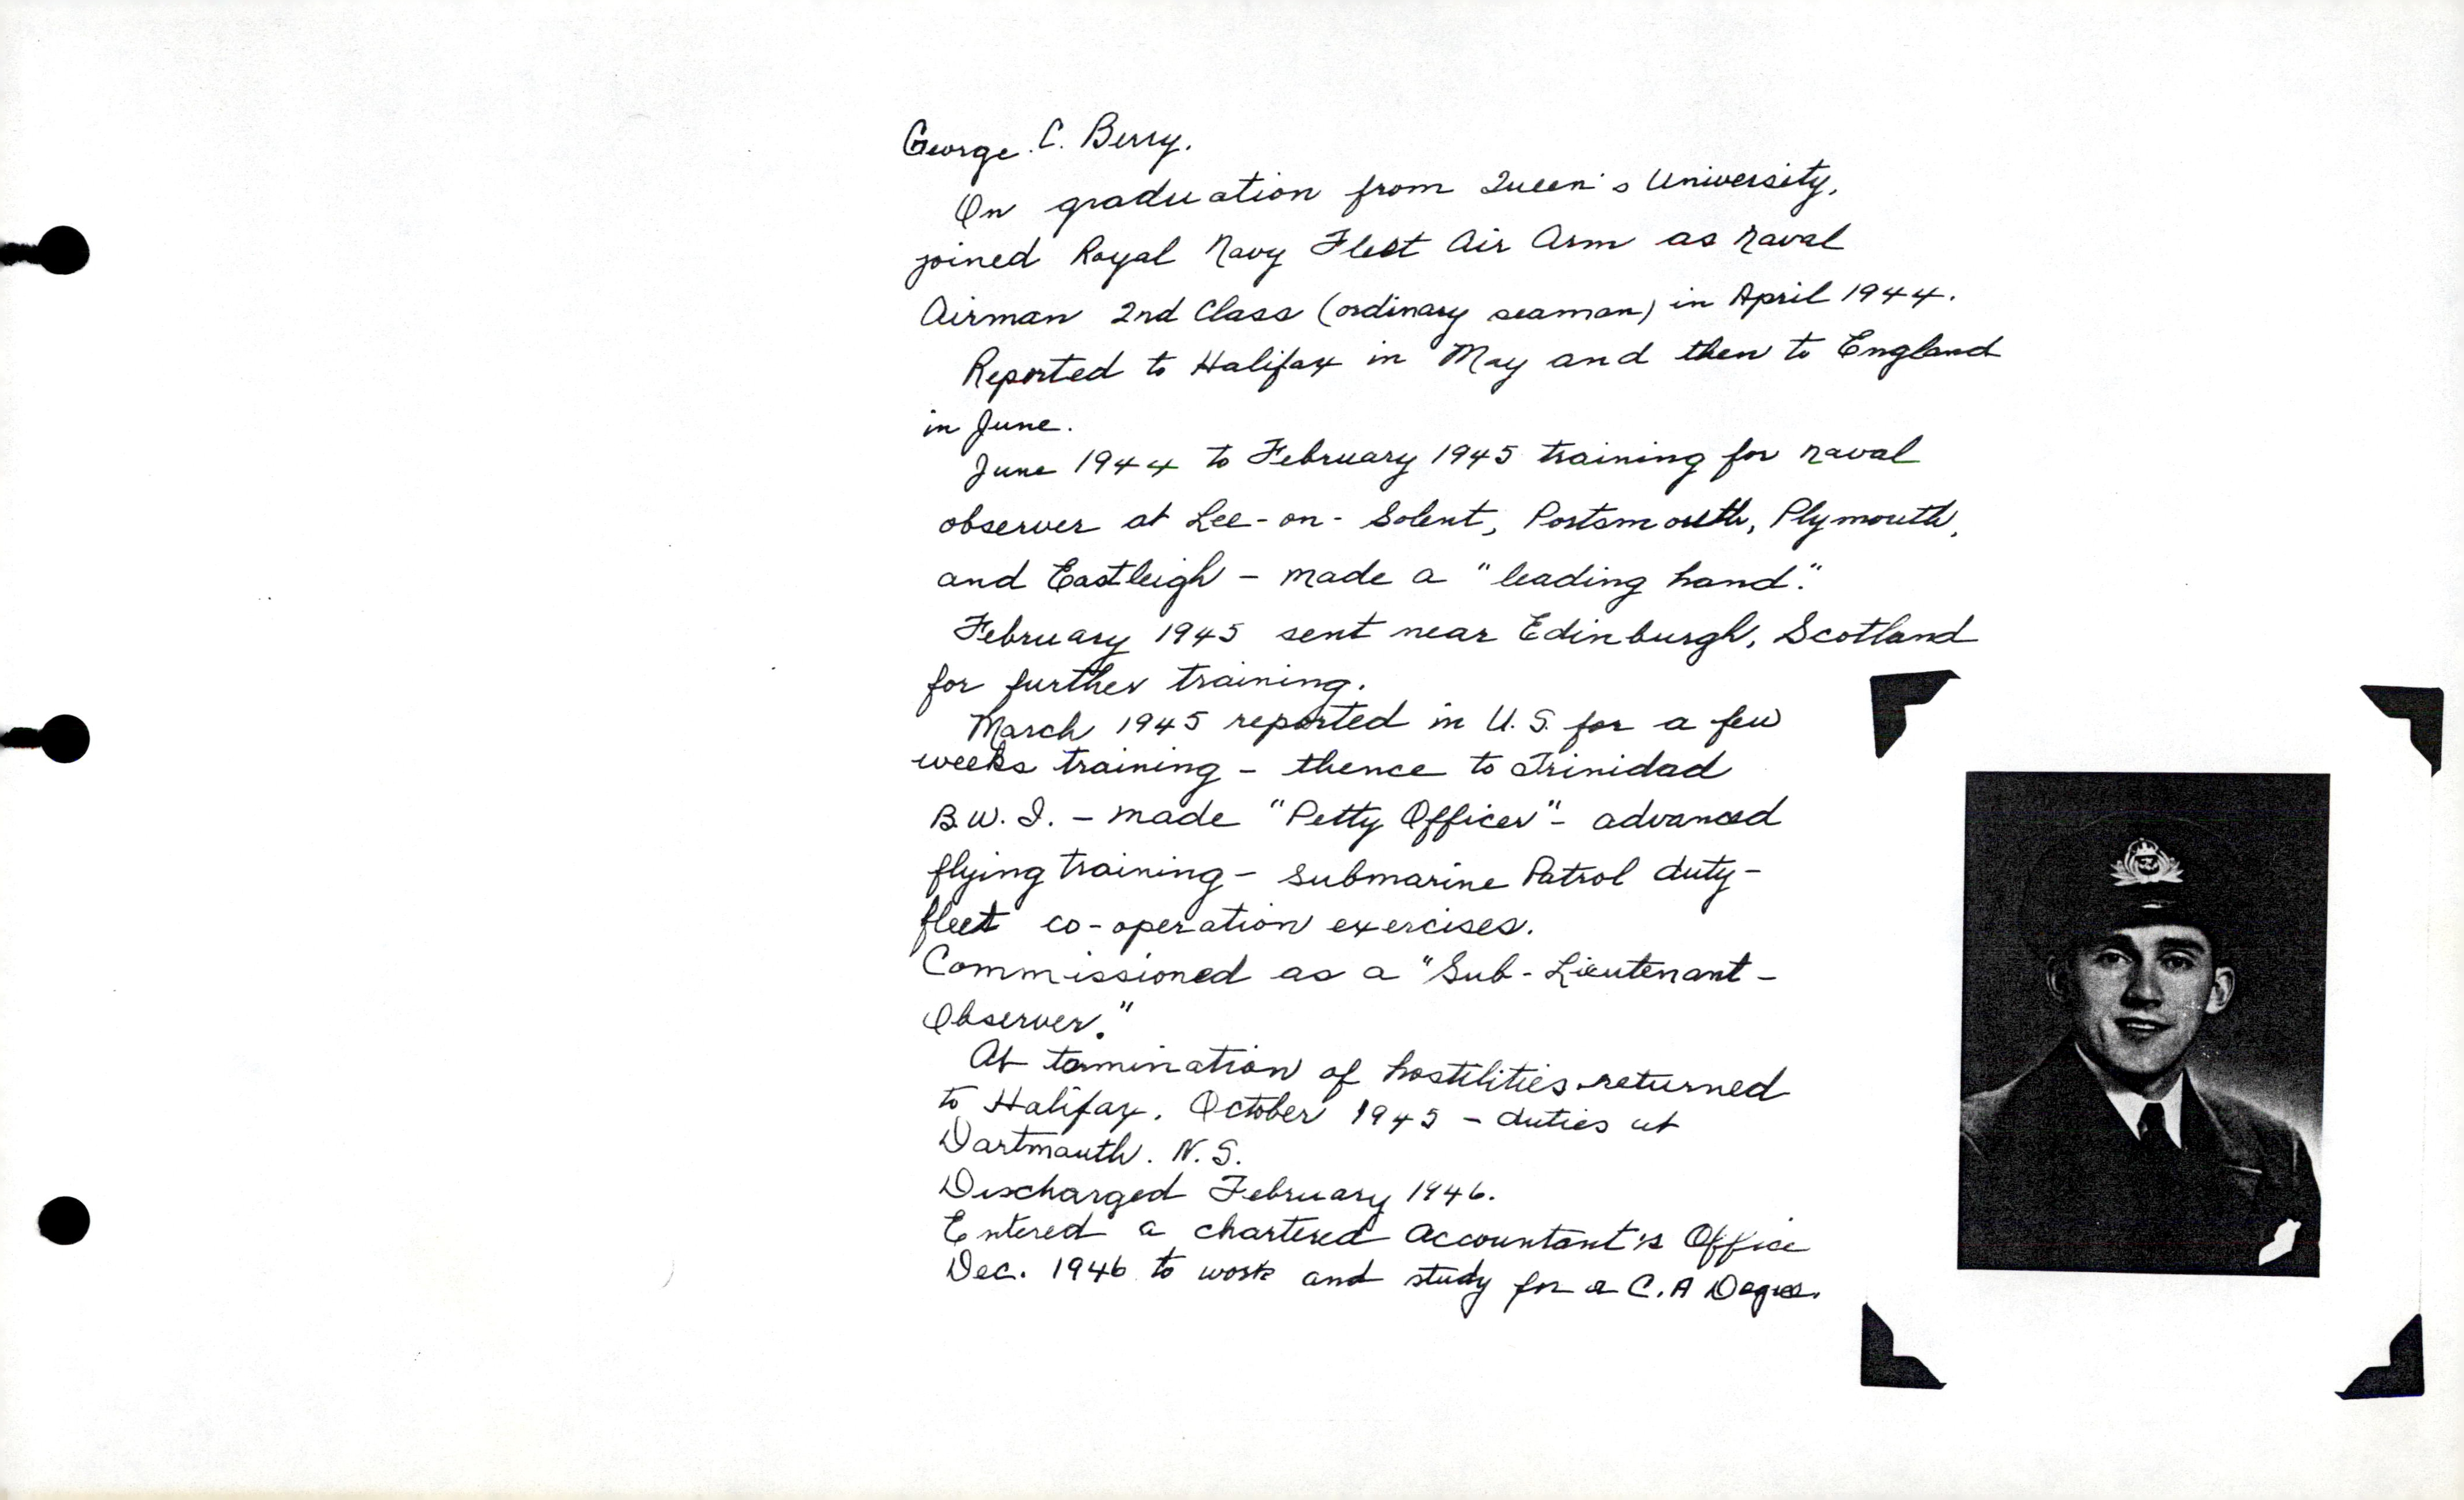 George. C. Berry.
On graduation from Queen's University,
joined Royal Navy Fleet Air Arm as Naval
Airman 2nd Class (ordinary seaman) in April 1944.
Reported to Halifax in May and then to England
in June.
June 1944 to February 1945 training for naval
observer at Lee-on-Solent, Portsmouth, Plymouth,
and Eastleigh - made a "leading hand".
February 1945 sent near Edinburgh, Scotland
for further training.
March 1945 reported in U.S. for a few
weeks training - thence to Trinidad
B.W.I. - made "Petty Officer" - advanced
flying training - submarine Patrol duty -
fleet co-operation exercises.
Commissioned as a "Sub-Lieutenant -
Observer."
At termination of hostilities returned
to Halifax. October 1945 - duties at
Dartmouth. N.S.
Discharged February 1946.
Entered a chartered accountant's Office
Dec. 1946 to work and study for a C.A Degree.